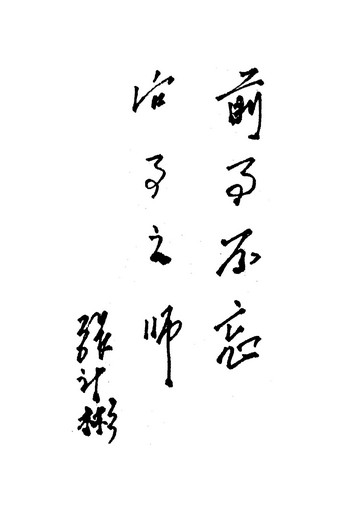 前事不忘
后事之师
張计彬